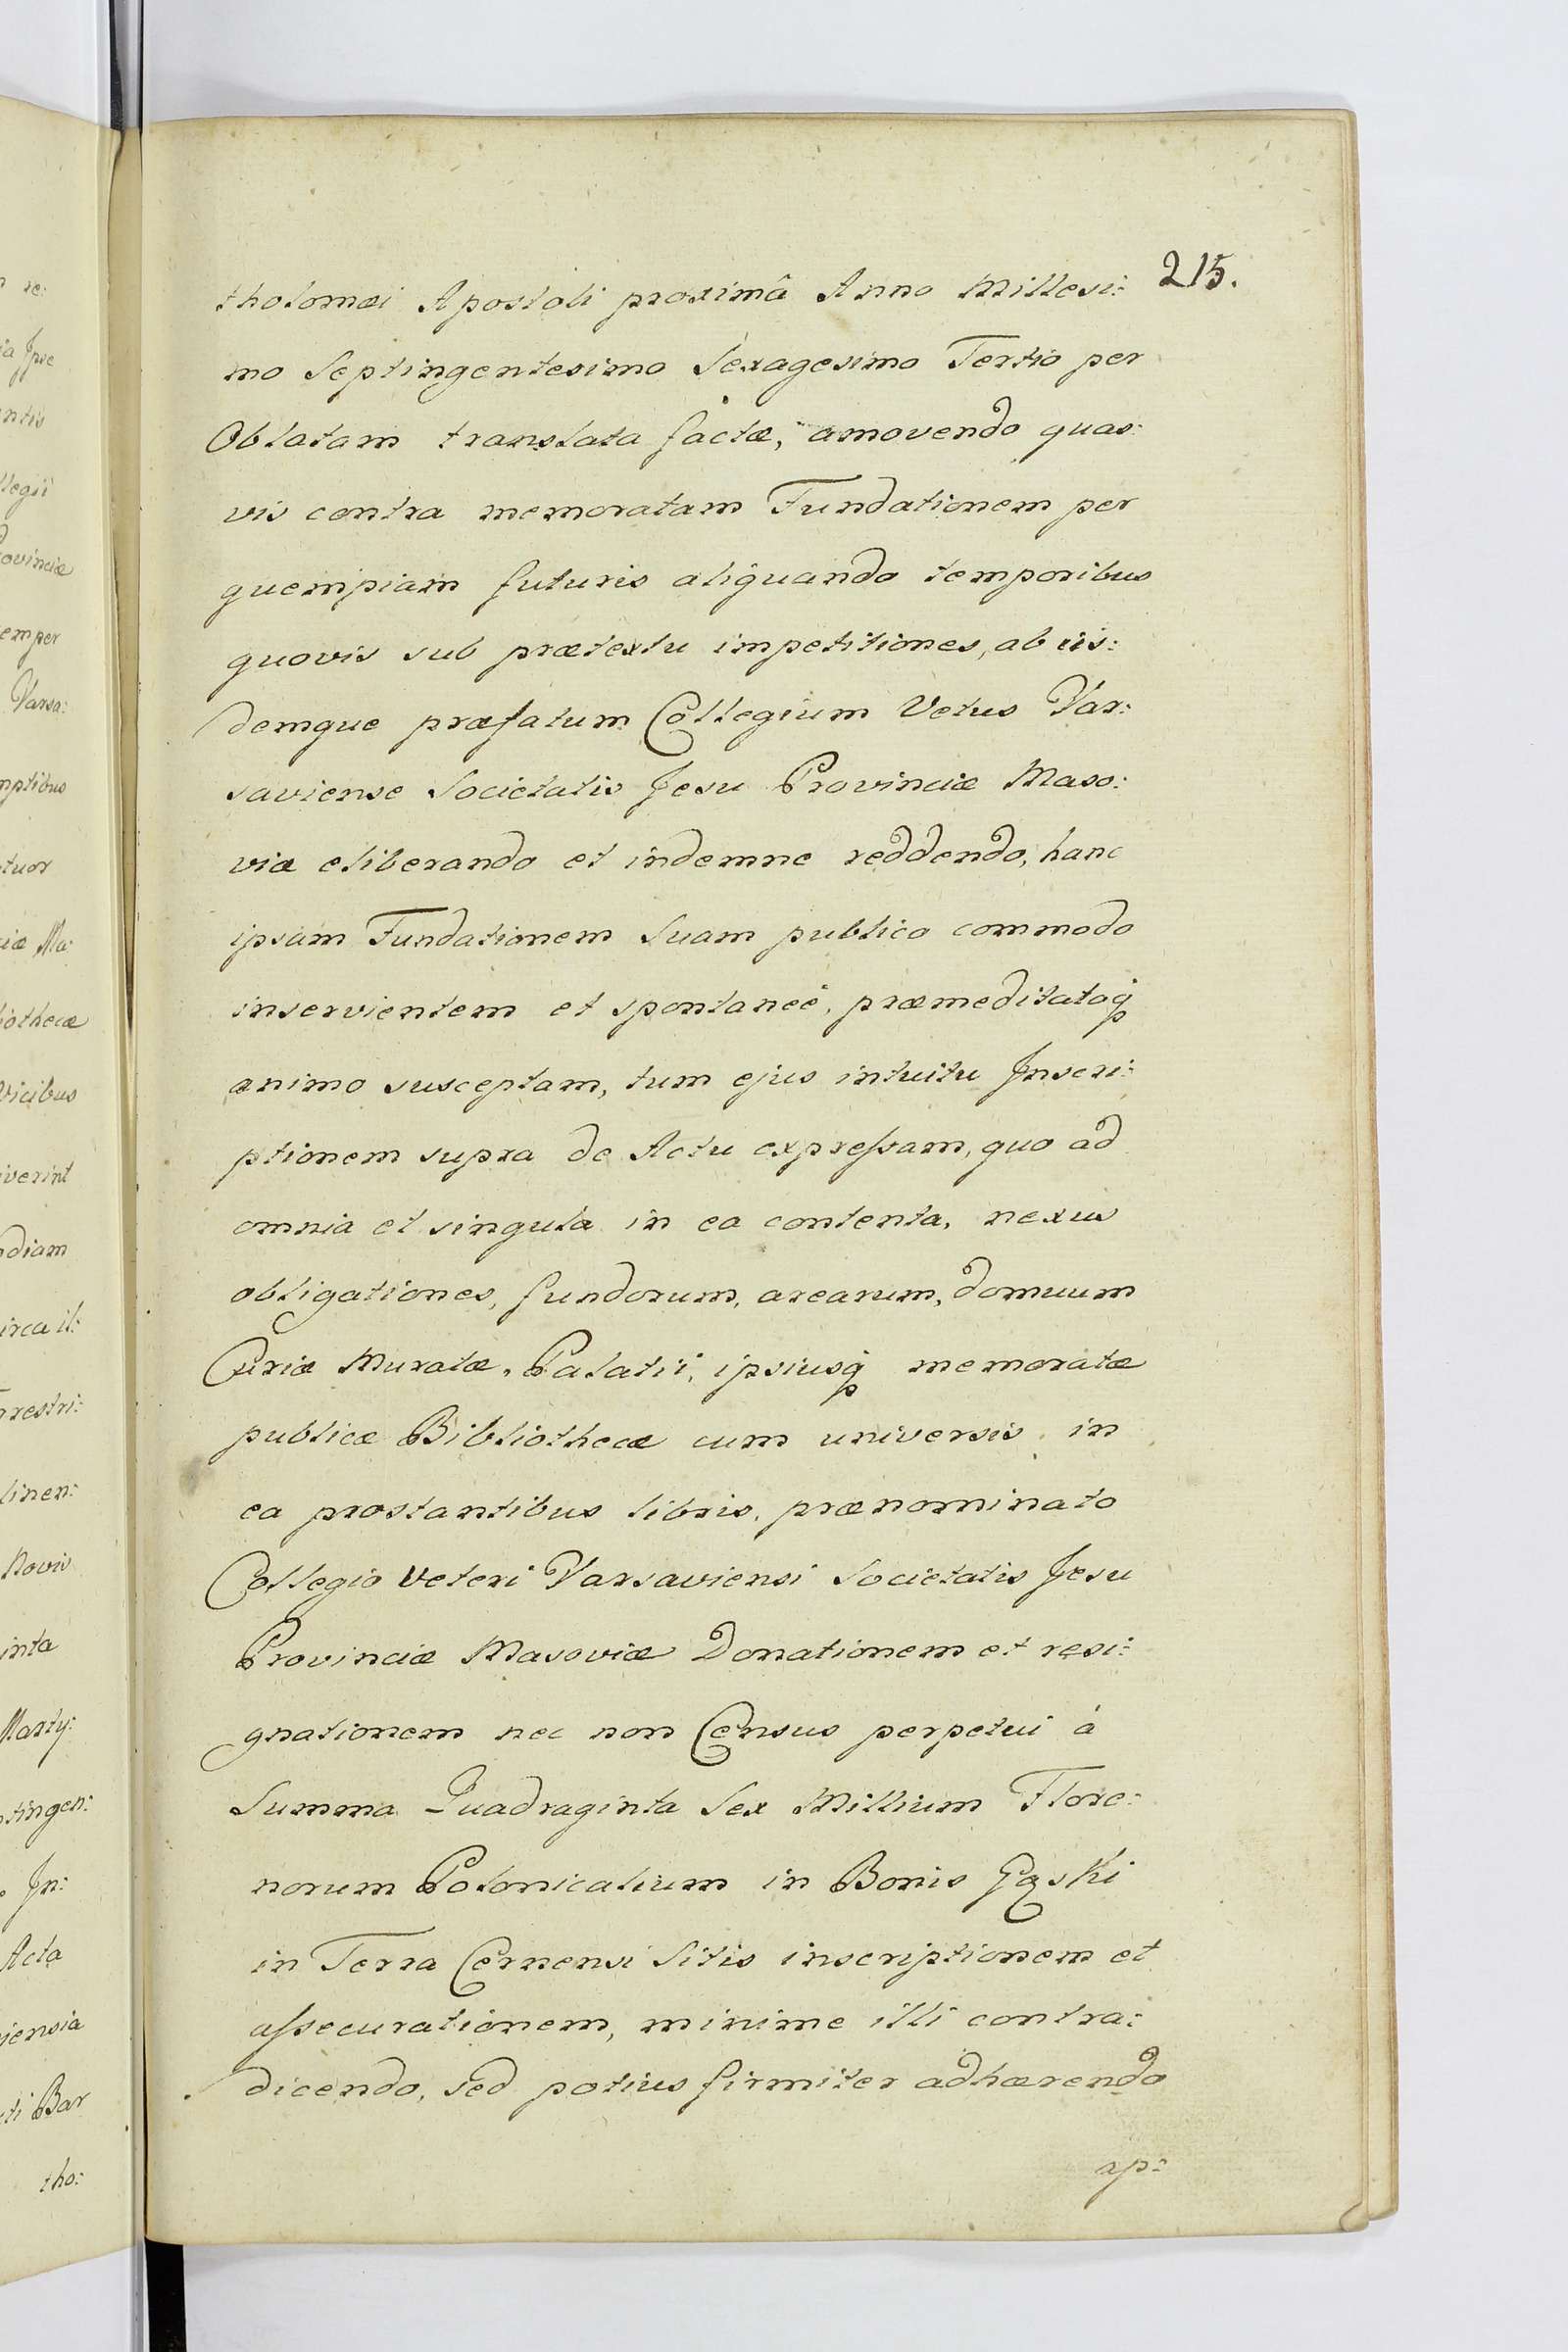 215.
tholomæi Apostoli proximâ Anno Millesi:
mo Septingentesimo Sexagesimo Tertio per
Oblatam translata factæ, amovendo quas:
vis contra memoratam Fundationem per
quempiam futuris aliquando temporibus
quovis sub prætextu impetitiones, ab iis:
demque præfatum Collegium Vetus Var:
saviense Societatis Jesu Provinciæ Maso:
viæ eliberando et indemne reddendo, hanc
ipsam Fundationem Suam publico commodo
inservientem et spontaneé, præmeditatoq
animo susceptam, tum ejus intuitu Inscri:
ptionem supra de Actu expressam, quo ad
omnia et singula in ea contenta, nexus
obligationes, fundorum, arearum, domuum
Curiæ Muratæ, Palatii, ipsiusq memoratæ
publicæ Bibliothecæ cum universis in
ea prostantibus libris, prænominato
Collegio Veteri Varsaviensi Societatis Jesu
Provinciæ Masoviæ Donationem et resi:
gnationem nec non Census perpetui à
Summa Quadraginta Sex Millium Flore:
norum Polonicalium in Bonis Gąski
in Terra Cernensi Sitis inscriptionem et
assecurationem, minime illi contra:
dicendo, sed potius firmiter adhærendo
ap: